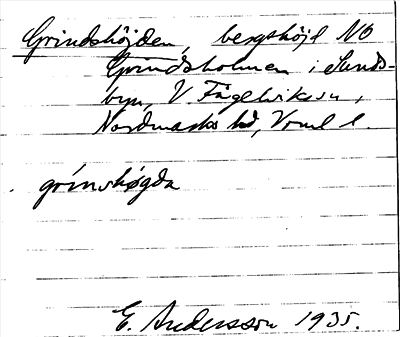 Grindshöjden, bergshöjd NO
Grindsholmen i Sunds-
byn, V Fågelviks sn,
Nordmarks hd, Vrml l.
grínshøgda
E. Andersson 1935.